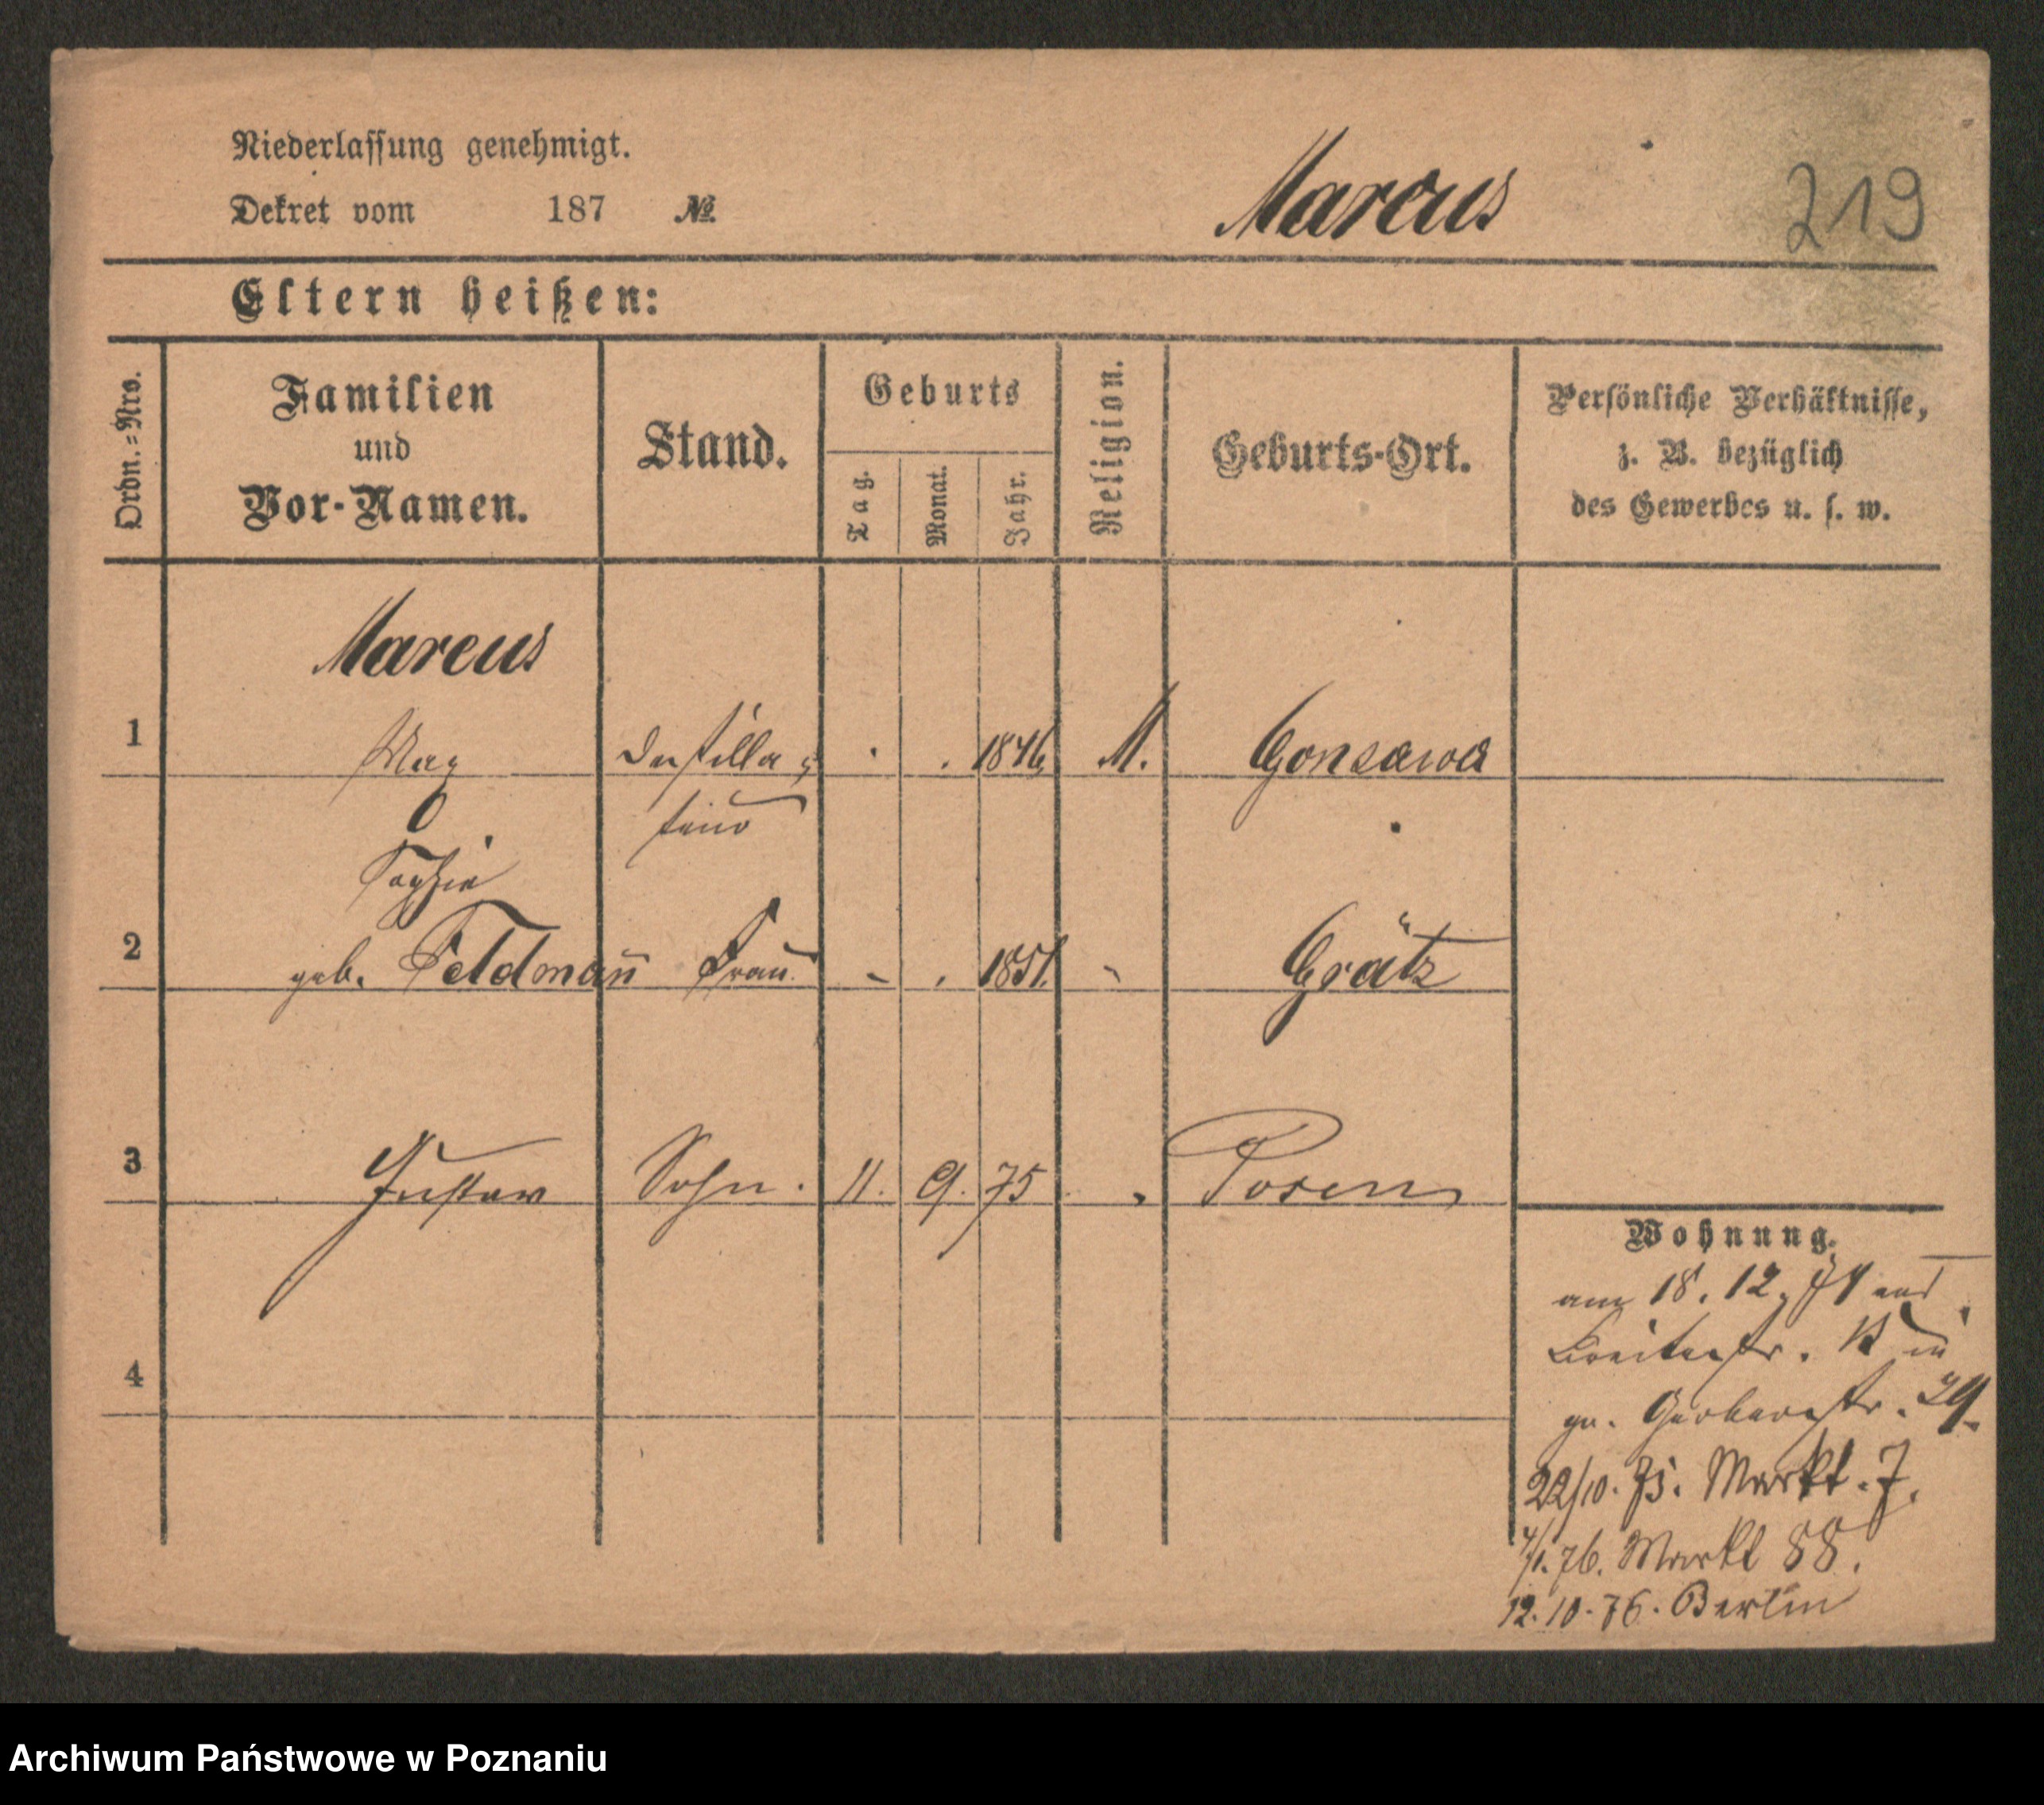 Niederlassung genehmigt.
Dekret vom 187 №
Marcus
219
Eltern heißen:
Ordn.=Nro.
Familien
und
Vor-Namen.
Stand.
Geburts
Tag.
Monat.
Jahr.
Religion.
Geburts-Ort.
Persönliche Verhältnisse,
z. B. bezüglich
des Gewerbes u. s. w.
Marcus
1 Max Destilla 1846 M. Gonsawa
teur
Sophie
2 geb. Feldman̄ Frau 1851. Grätz
3 Gustav Sohn. 11. 9. 75 Posen
Wohnung.
am 18. 12. 74 aus
Breitestr. in
gr. Gerberstr. 29.
22/10. 75. Markt. 7.
4/1. 76. Markt 88.
12. 10. 76. Berlin
4
Archiwum Państwowe w Poznaniu